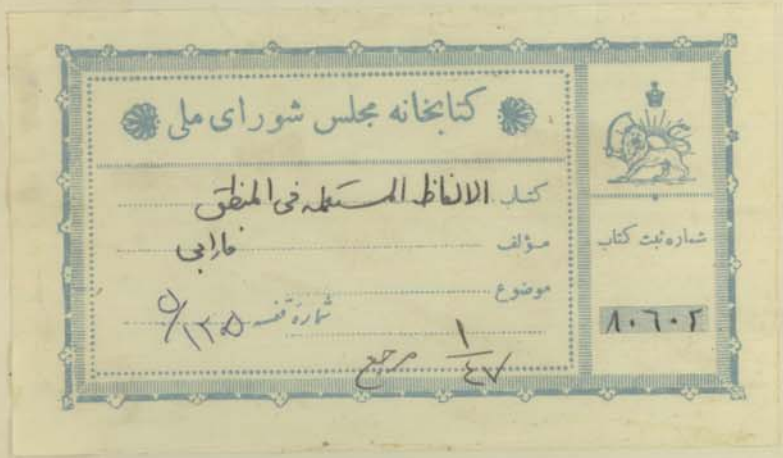 کتابخانه مجلس شورای ملی
کتاب الالفاظ المستعمله فی المنطق
مؤلف فارابی
موضوع
شماره قفسه ۵/۱۳۵
۱/۴۷ مرجع
شماره ثبت کتاب
۸۰۶۰۲